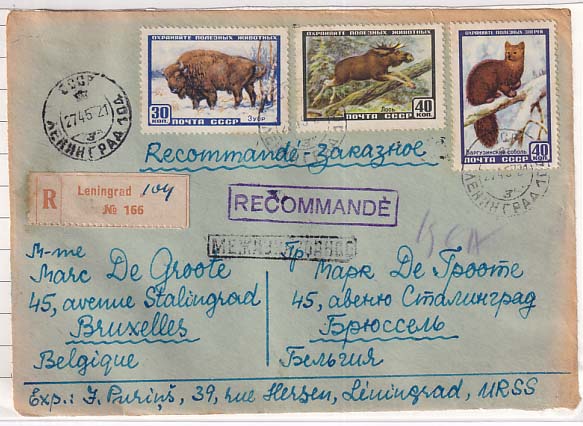 ОХРАНЯЙТЕ ПОЛЕЗНЫХ ЖИВОТНЫХ
30 КОП.
Зубр
ПОЧТА СССР
ОХРАНЯЙТЕ ПОЛЕЗНЫХ ЖИВОТНЫХ
Лось
40 КОП.
ПОЧТА СССР
ОХРАНЯЙТЕ ПОЛЕЗНЫХ ЗВЕРЕЙ
Баргузинский соболь
ПОЧТА СССР
40 КОП.
СССР
ЛЕНИНГРАД 104
Recommandé - Заказное
R
Leningrad 104
№ 166
RECOMMANDÉ
МЕЖДУНАРОДНОЕ
M-me
Marc De Groote
45, avenue Stalingrad
Bruxelles
Belgique
Гр.
Марк Де Гроотe
45, авеню Сталинград
Брюссель
Бельгия
Exp.: J. Puriņš, 39, rue Herzen, Léningrad, URSS